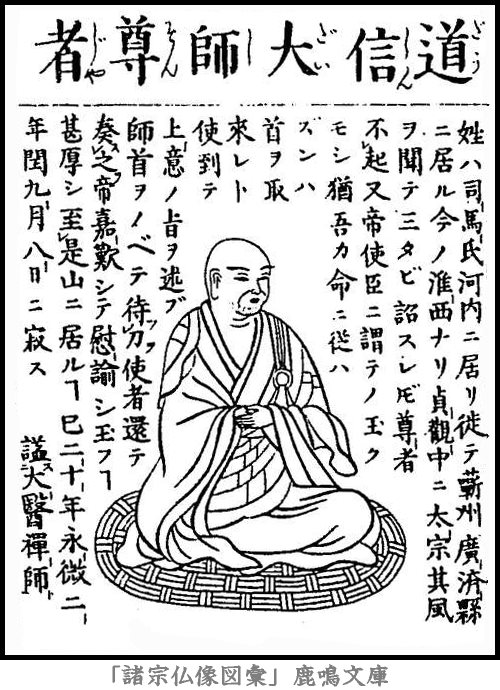 道信大師尊者
姓ハ司馬氏河内ニ居リ徙テ蘄州廣濟縣
ニ居ル今ノ淮西ナリ貞觀中ニ太宗其風
ヲ聞テ三タビ詔スレ𪜈尊者
不起又帝使臣ニ謂テノ玉ク
モシ猶吾カ命ニ從ハ
ズンハ
首ヲ取
來レト
使到テ
上意ノ旨ヲ述ブ
師首ヲノベテ待刀使者還テ
奏之帝嘉歎シテ慰諭シ玉フヿ
甚厚シ至是山ニ居ルヿ已二十年永徽二
年閏九月八日ニ寂ス
謚大醫禪師
「諸宗仏像図彙」鹿鳴文庫